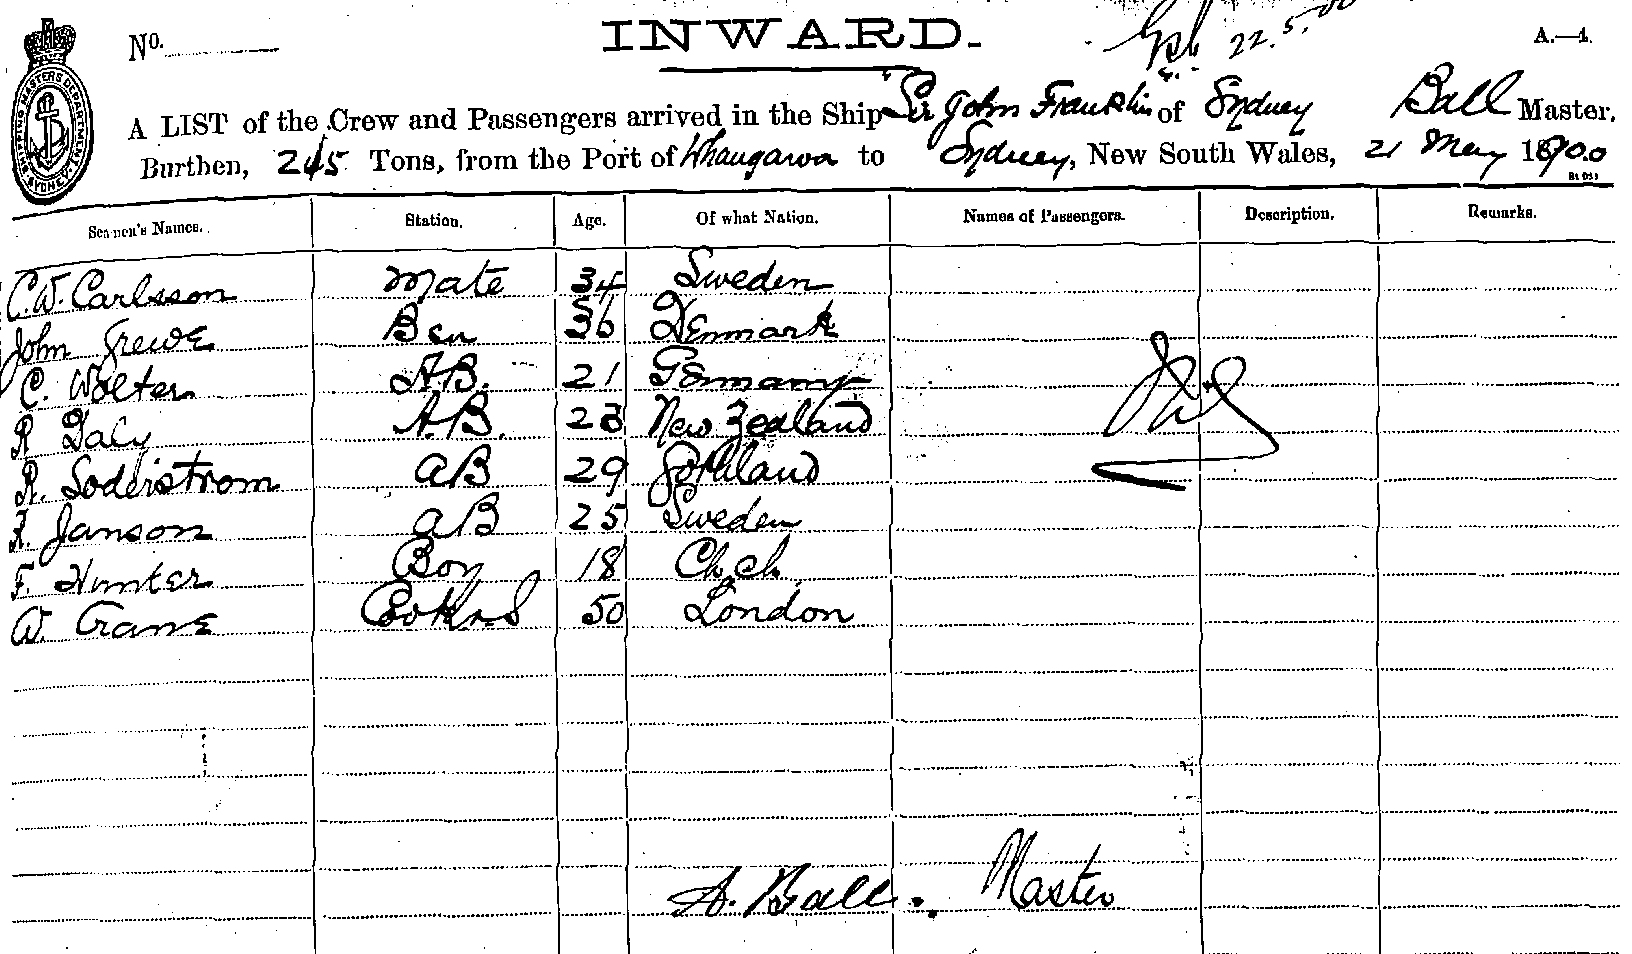 No.
INWARD.
22.5.00
A.—4.
SHIPPING MASTERS DEPARTMENT SYDNEY
A LIST of the Crew and Passengers arrived in the Ship Sir John Franklin of Sydney Ball Master,
Burthen, 245 Tons, from the Port of Whangaroa to Sydney, New South Wales, 21 May 1900
Seamen's Names. Station. Age. Of what Nation. Names of Passengers. Description. Remarks.
C.W. Carlsson Mate 34 Sweden
John Grewe Bsn 36 Denmark
C. Wolter A.B. 21 Germany
R Daly A.B. 23 New Zealand
R. Soderstrom AB 29 Gothland
F. Janson AB 25 Sweden
F. Hunter Boy 18 Ch.ch.
W. Crane Cook &.S 50 London
Nil
A. Ball. Master